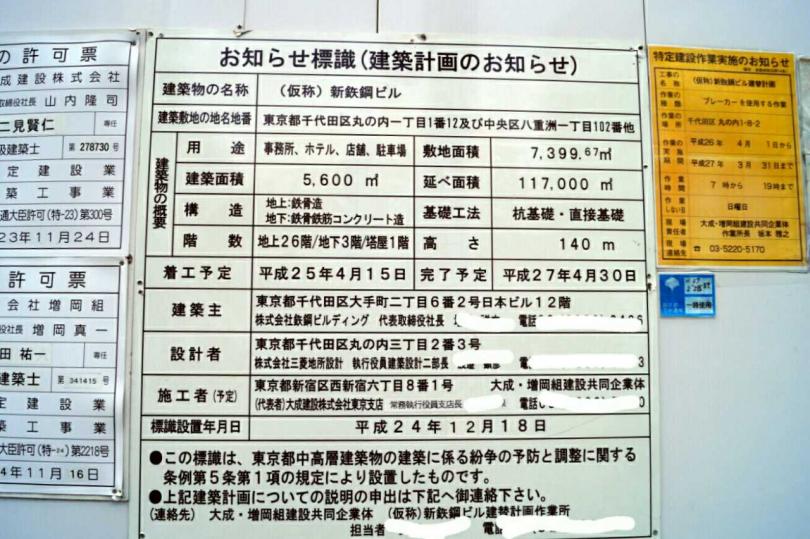 の許可票
成建設株式会社
取締役社長 山内隆司
二見賢仁 専任
級建築士 第278730号
定建設業
築工事業
通大臣許可(特-23)第300号
23年11月24日
許可票
会社増岡組
社長 増岡真一
田祐一 専任
建築士 第341415号
定建設業
築工事業
大臣許可(特-24)第2218号
4年11月16日
お知らせ標識(建築計画のお知らせ)
建築物の名称 (仮称)新鉄鋼ビル
建築敷地の地名地番 東京都千代田区丸の内一丁目1番12及び中央区八重洲一丁目102番他
建築物の概要
用途 事務所、ホテル、店舗、駐車場 敷地面積 7,399.67㎡
建築面積 5,600㎡ 延べ面積 117,000㎡
構造 地上:鉄骨造
地下:鉄骨鉄筋コンクリート造 基礎工法 杭基礎・直接基礎
階数 地上26階/地下3階/塔屋1階 高さ 140m
着工予定 平成25年4月15日 完了予定 平成27年4月30日
建築主 東京都千代田区大手町二丁目6番2号日本ビル12階
株式会社鉄鋼ビルディング 代表取締役社長 電話
設計者 東京都千代田区丸の内三丁目2番3号
株式会社三菱地所設計 執行役員建築設計二部長 電話 3
施工者(予定) 東京都新宿区西新宿六丁目8番1号 大成・増岡組建設共同企業体
(代表者)大成建設株式会社東京支店 常務執行役員支店長 電話 0
標識設置年月日 平成24年12月18日
●この標識は、東京都中高層建築物の建築に係る紛争の予防と調整に関する
条例第5条第1項の規定により設置したものです。
●上記建築計画についての説明の申出は下記へ御連絡下さい。
(連絡先) 大成・増岡組建設共同企業体 (仮称)新鉄鋼ビル建替計画作業所
担当者 電話
特定建設作業実施のお知らせ
工事の名称 (仮称)新鉄鋼ビル建替計画
作業の種類 ブレーカーを使用する作業
作業の場所 千代田区丸の内1-8-2
作業の実施期間 平成26年4月1日から
平成27年3月31日まで
作業時間 7時から19時まで
作業しない日 日曜日
現場責任者 大成・増岡組建設共同企業体
作業所長 坂本雅之
現場連絡先 ☎ 03-5220-5170
一時使用